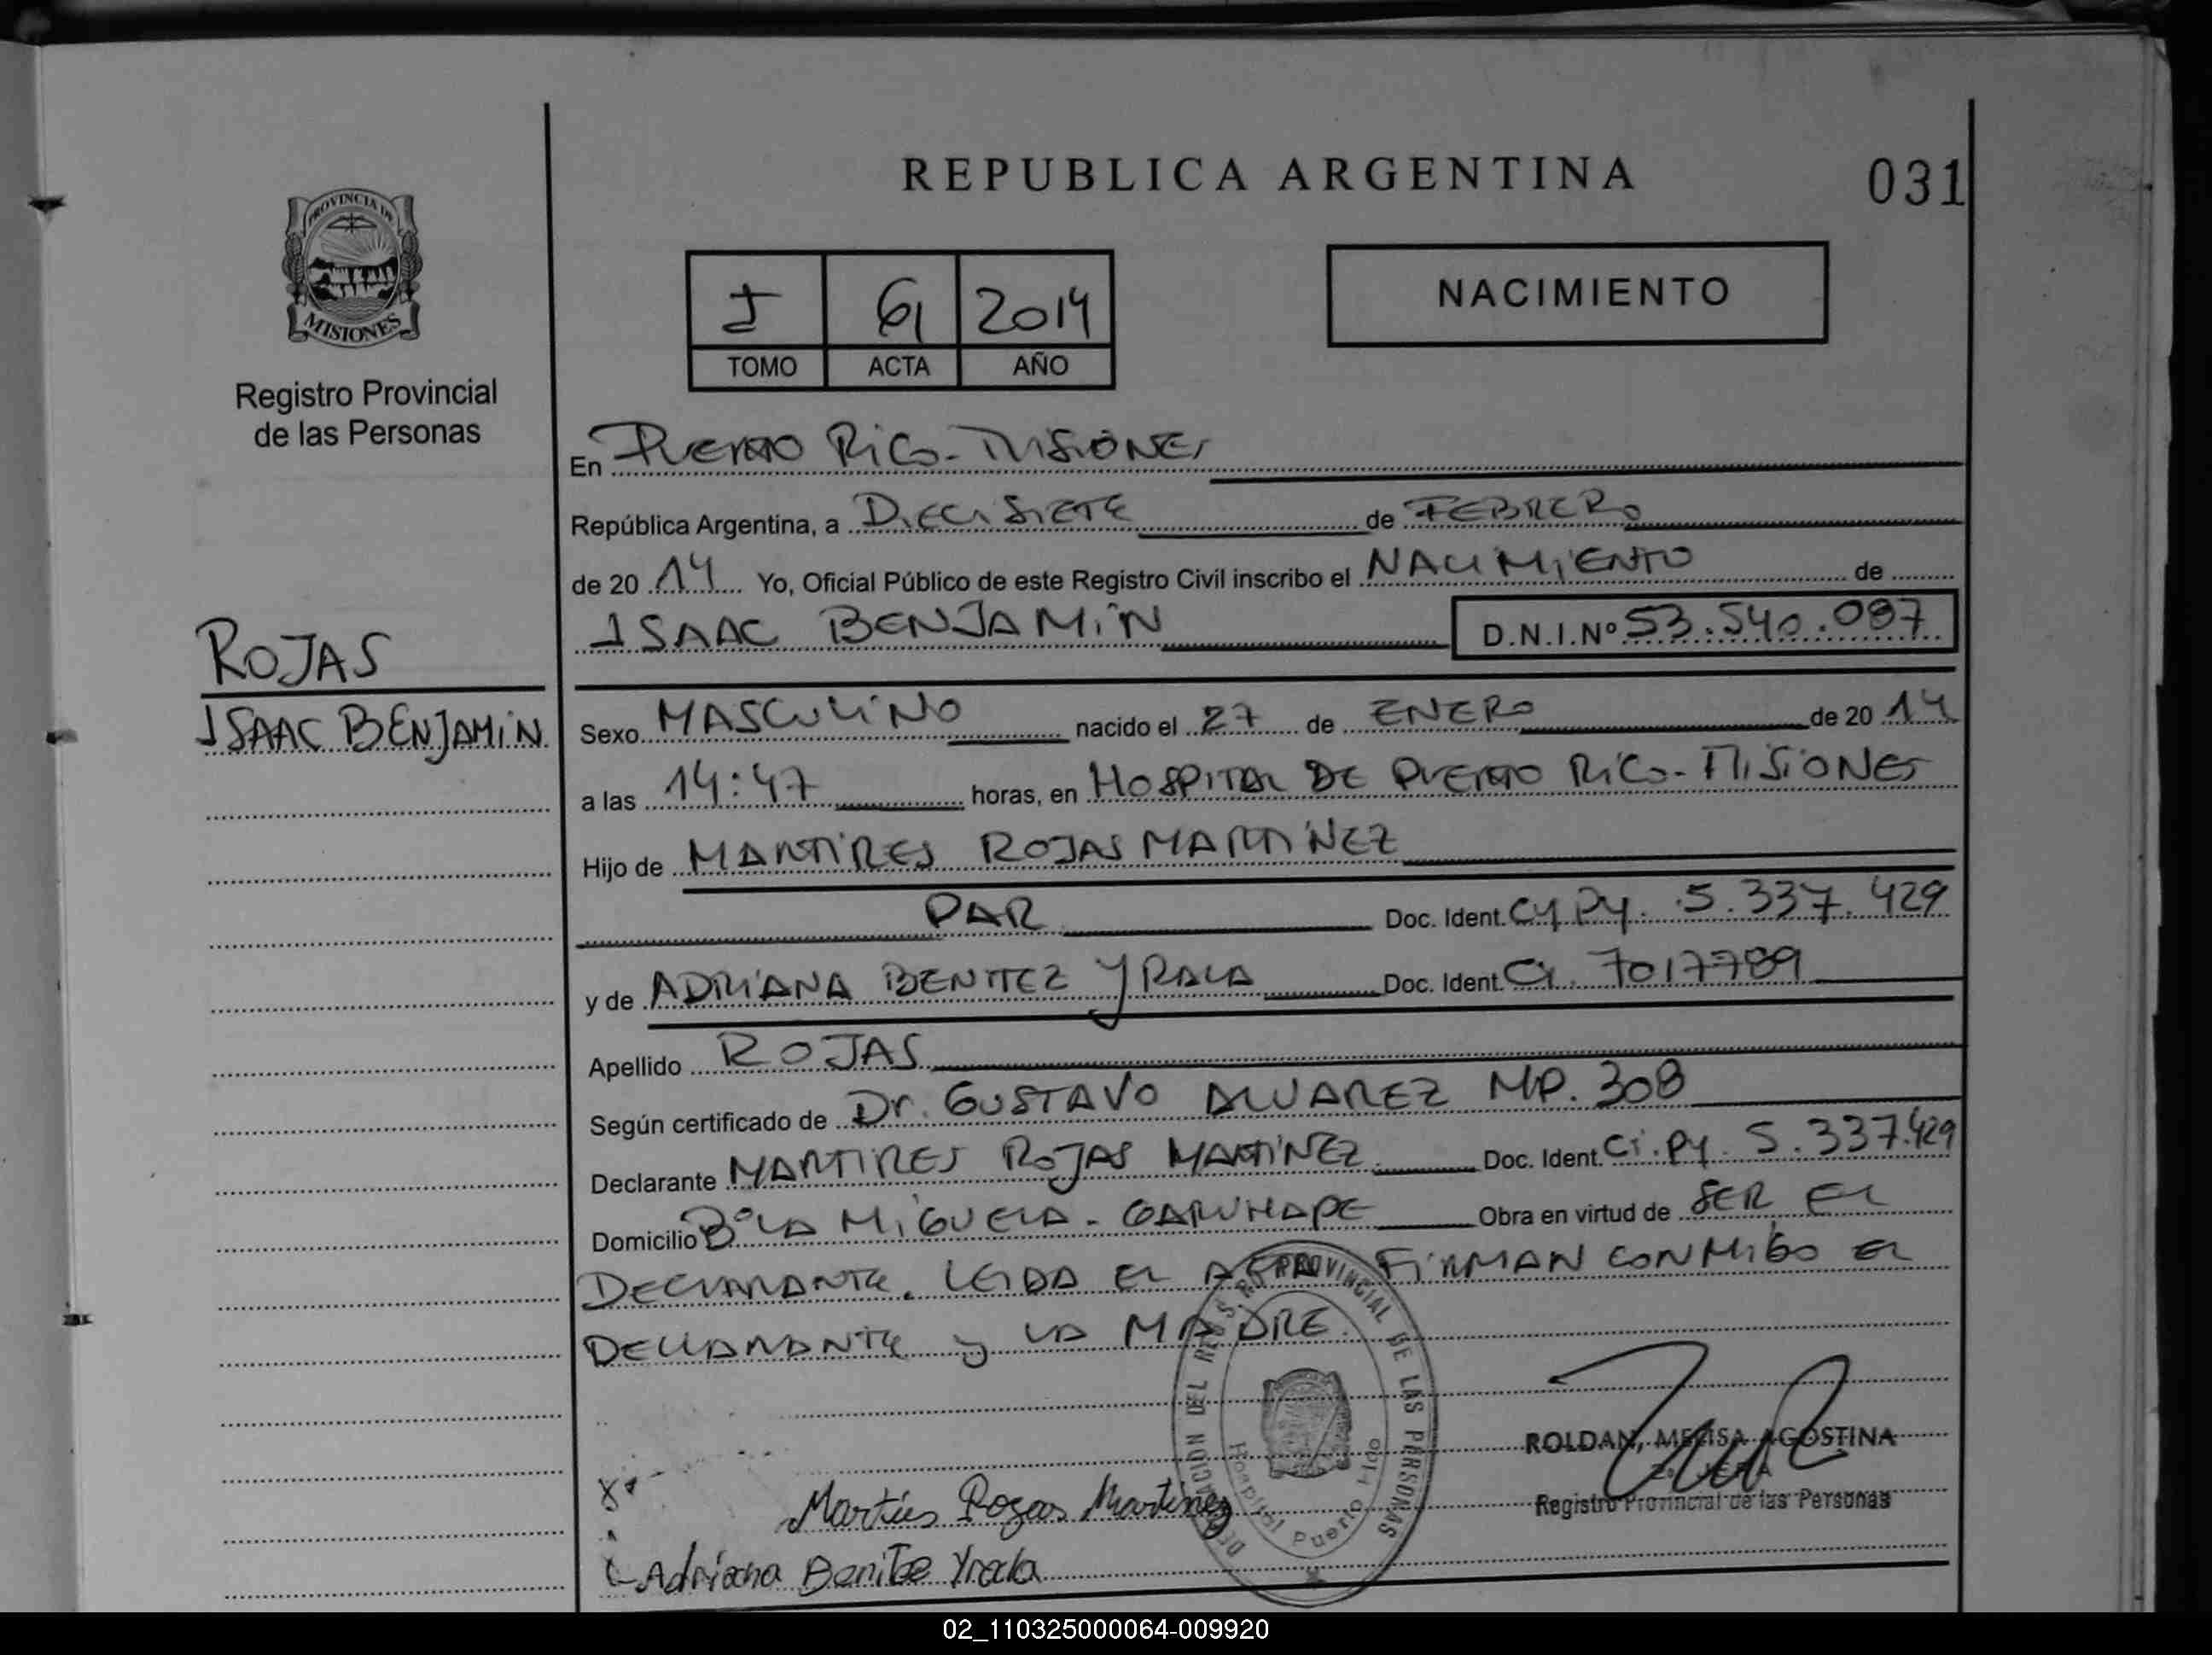 REPUBLICA ARGENTINA
031
PROVINCIA DE
MISIONES
Registro Provincial
de las Personas
I 61 2014
TOMO ACTA AÑO
NACIMIENTO
En PUERTO RICO - MISIONES
República Argentina, a DIECISIETE de FEBRERO
de 20 14 Yo, Oficial Público de este Registro Civil inscribo el NACIMIENTO de
ISAAC BENJAMIN D.N.I.Nº 53.540.087
ROJAS
ISAAC BENJAMIN
Sexo MASCULINO nacido el 27 de ENERO de 20 14
a las 14:47 horas, en HOSPITAL DE PUERTO RICO - MISIONES
Hijo de MARTIRES ROJAS MARTINEZ
PAR Doc. Ident. CI PY. 5.337.429
y de ADRIANA BENITEZ YRALA Doc. Ident. CI. 7017789
Apellido ROJAS
Según certificado de Dr. GUSTAVO ALVAREZ MP. 308
Declarante MARTIRES ROJAS MARTINEZ Doc. Ident. CI. PY. 5.337.429
Domicilio Bº LA MIGUELA - GARUHAPE Obra en virtud de SER EL
DECLARANTE. LEIDA EL ACTA FIRMAN CONMIGO EL
DECLARANTE y LA MADRE.
DELEGACION DEL REGISTRO PROVINCIAL DE LAS PERSONAS
Hospital Puerto Rico
ROLDAN, MELISA AGOSTINA
Registro Provincial de las Personas
Martires Rojas Martinez
Adriana Benite Yrala
02_110325000064-009920